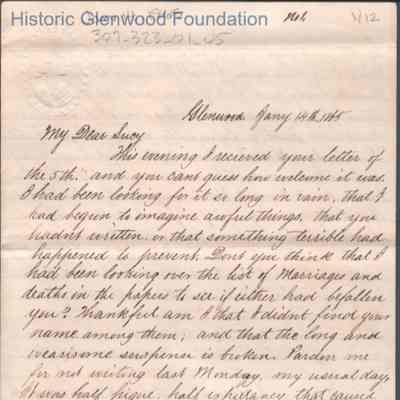 Historic Glenwood Foundation
No 1
1/12
Glenwood Jany 14th, 1865
My Dear Lucy
This evening I recieved your letter of
the 5th. and you cant guess how welcome it was.
I had been looking for it so long in vain, that I
had begun to imagine awful things, that you
hadnt written or that something terrible had
happened to prevent. Dont you think that I
had been looking over the list of Marriages and
deaths in the papers to see if either had befallen
you? Thankful am I that I didnt find your
name among them; and that the long and
wearisome suspense is broken. Pardon me
for not writing last Monday, my usual day,
It was half pique, half that caused